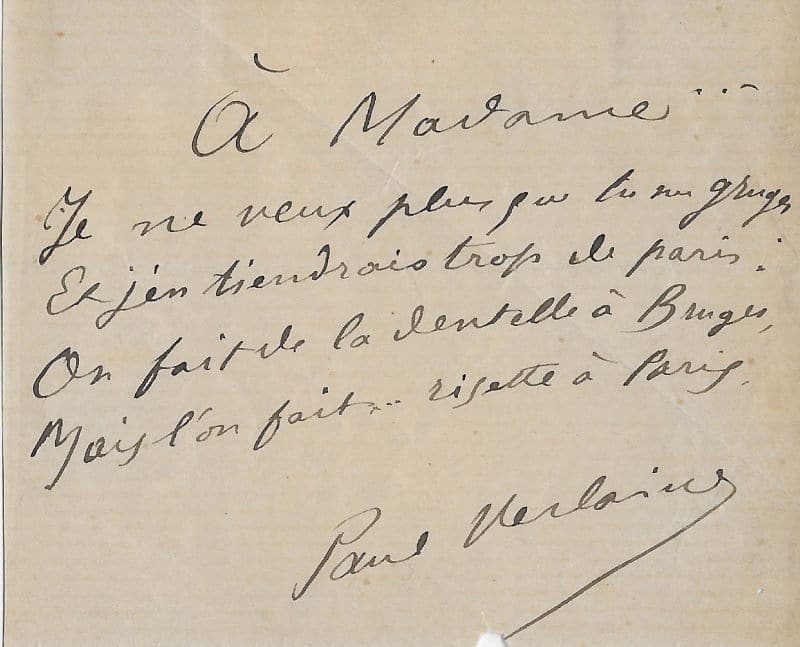 À Madame ...
Je ne veux plus que tu me gruges
Et j'en tiendrais trop de paris :
On fait de la dentelle à Bruges,
Mais l'on fait... risette à Paris.
Paul Verlaine